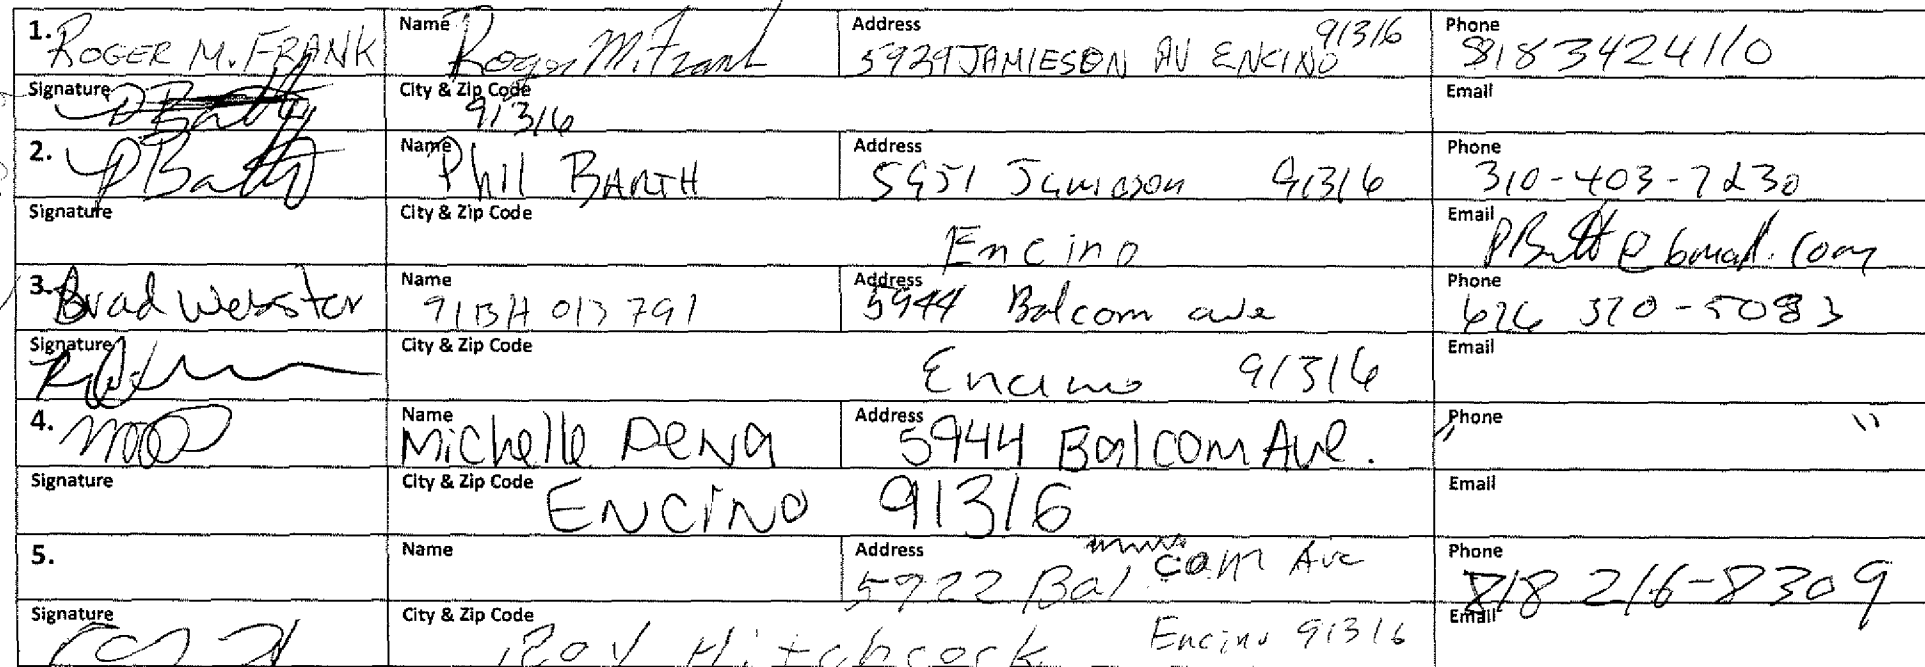 1. ROGER M. FRANK Name Roger M. Frank Address 5939 JAMIESON AV ENCINO 91316 Phone 8183424110
Signature City & Zip Code 91316 Email
2. PBarth Name Phil BARTH Address 5951 Jamieson 91316 Phone 310-403-7230
Signature City & Zip Code Encino Email
3. Brad Webster Name Address 5944 Balcom ave Phone 626 370-5083
Signature City & Zip Code Encino 91316 Email
4. Name Michelle Pena Address 5944 Balcom Ave. Phone "
Signature City & Zip Code ENCINO 91316 Email
5. Name Address 5922 Balcom Ave Phone 818 216-8309
Signature City & Zip Code Roy Hitchcock Encino 91316 Email